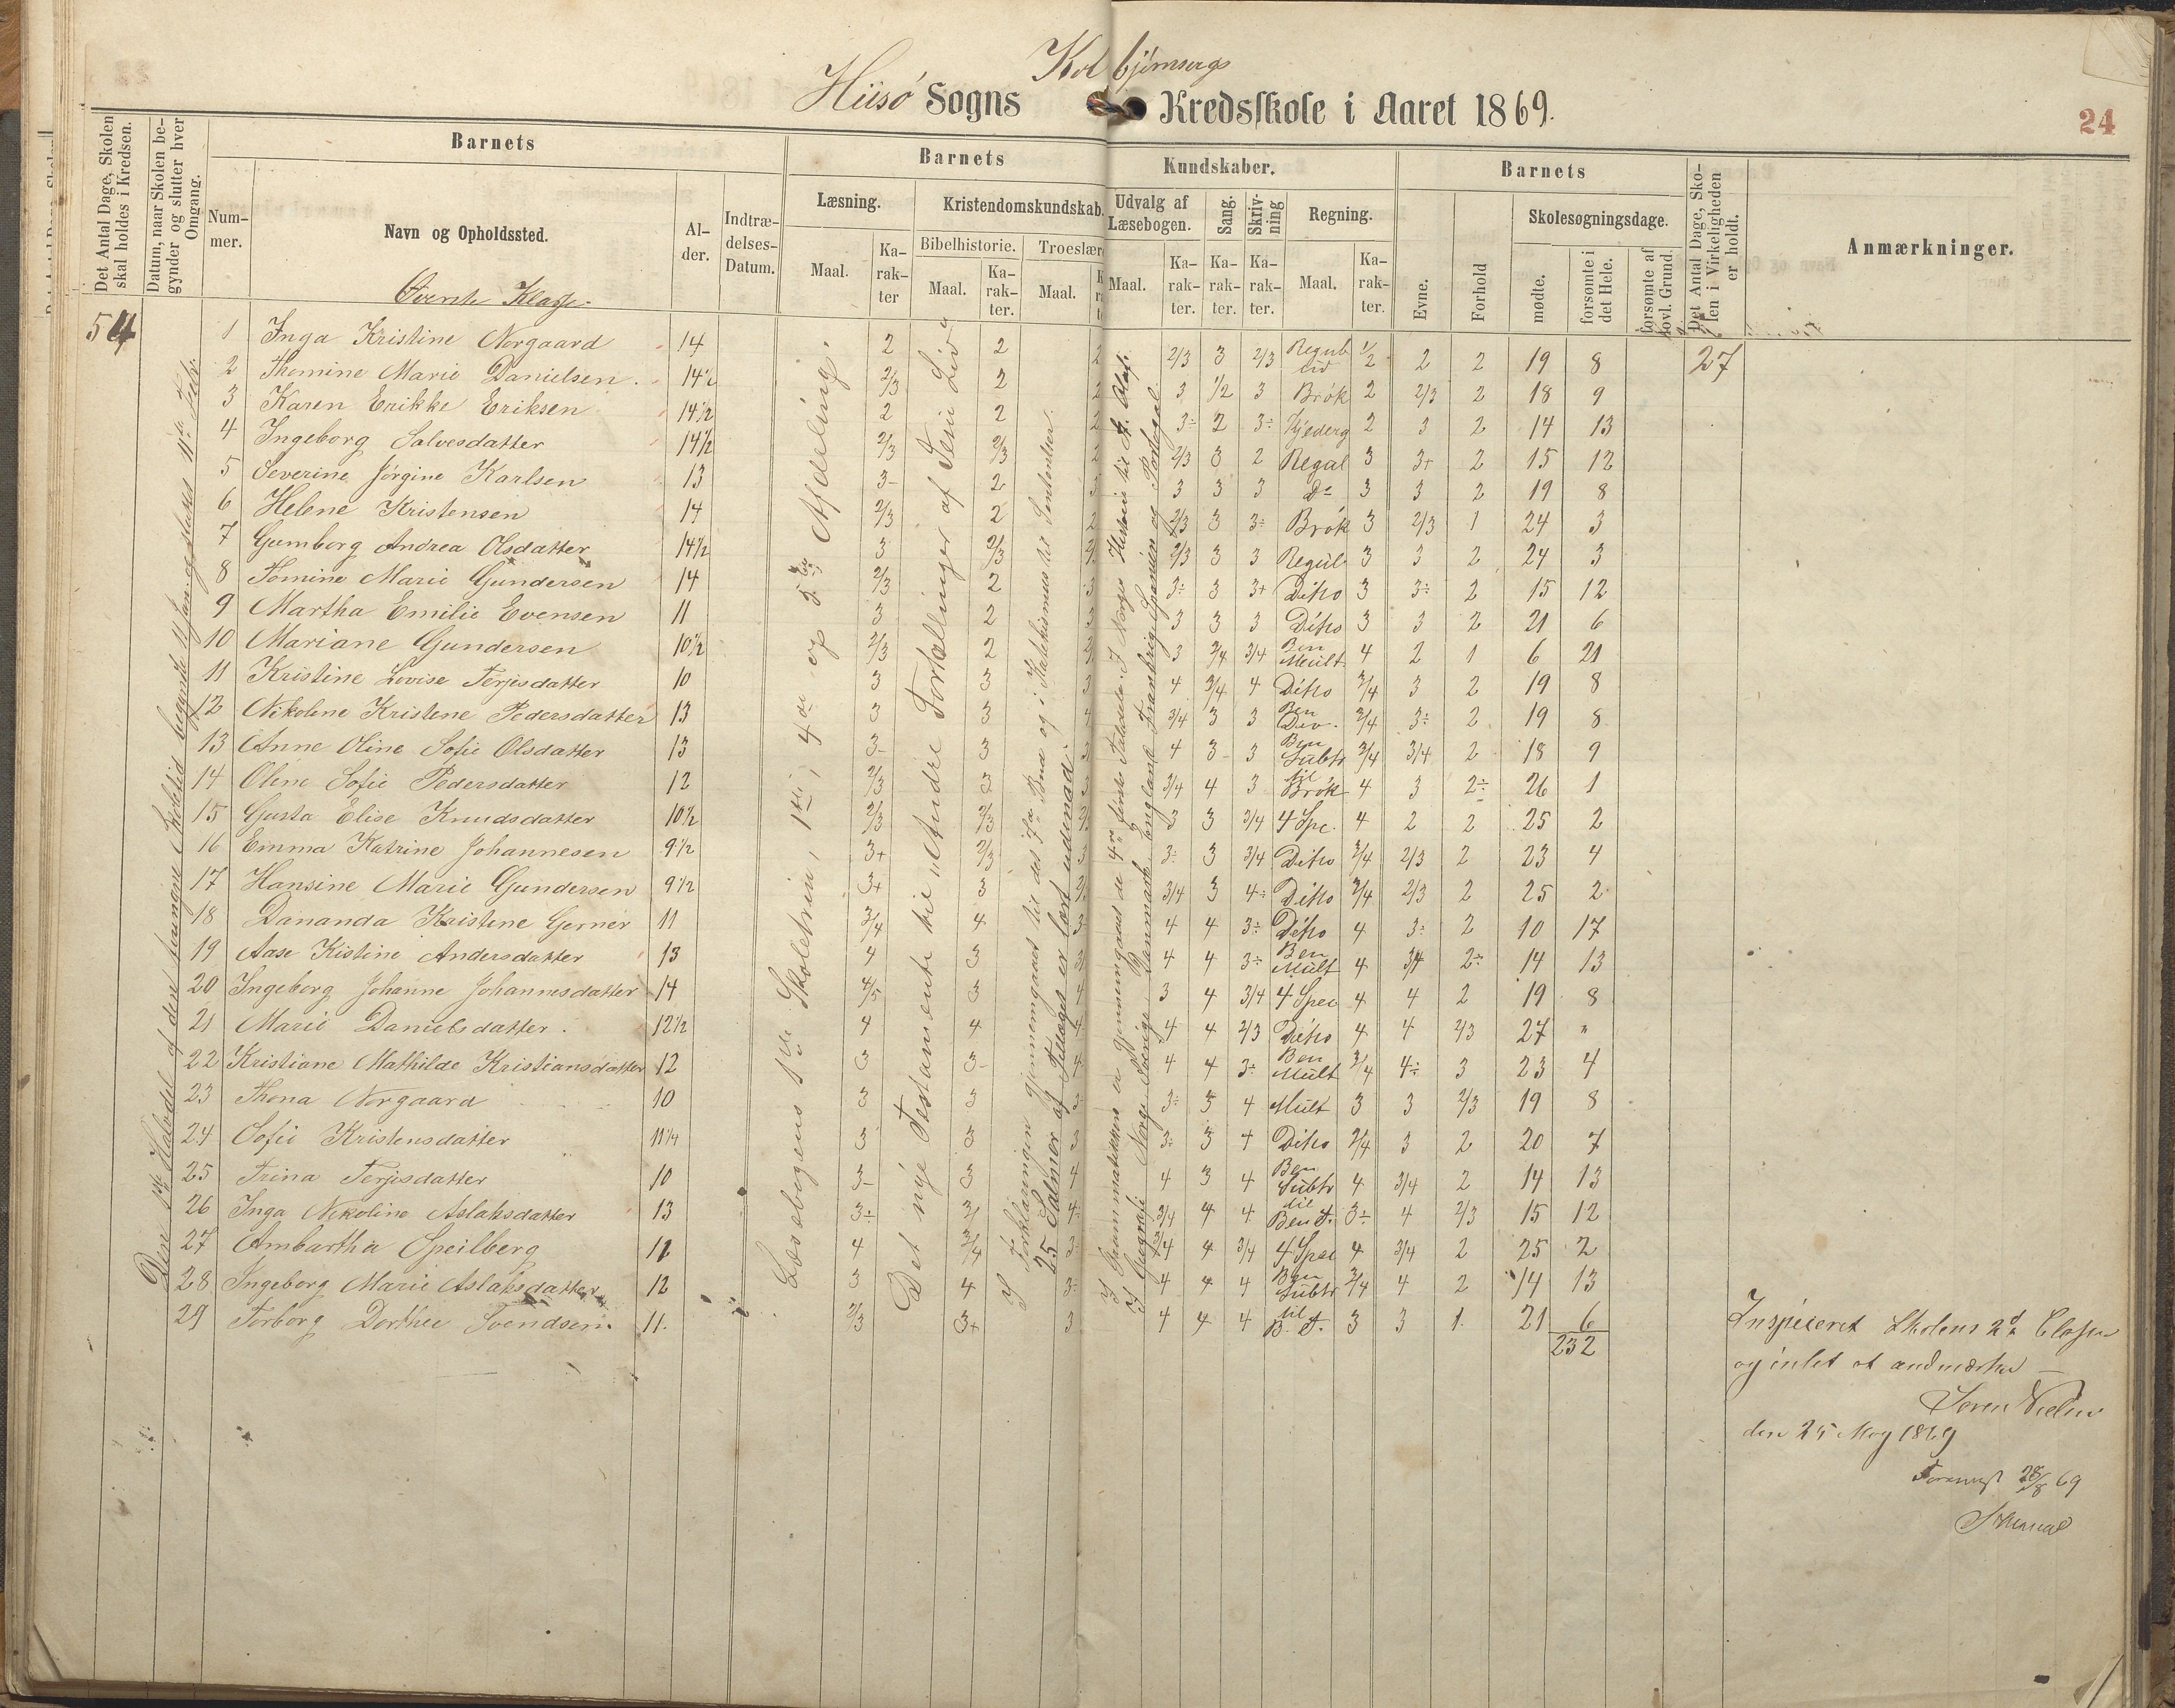 Kolbjörnsvigs
Hiisö Sogns Kredsskole i Aaret 1869.
24
Det Antal Dage, Skolen skal holdes i Kredsen.
Datum, naar Skolen begynder og slutter hver Omgang.
Barnets
Nummer.
Navn og Opholdssted.
Alder.
Indtrædelses-Datum.
Barnets Kundskaber.
Læsning.
Maal.
Karakter
Kristendomskundskab.
Bibelhistorie.
Maal.
Karakter.
Troeslære
Maal.
Udvalg af Læsebogen.
Maal.
Karakter.
Sang.
Karakter.
Skrivning
Karakter.
Regning.
Maal.
Karakter.
Barnets
Evne.
Forhold
Skolesøgningsdage.
mødte.
forsømte i det Hele.
forsømte af lovl. Grund.
Det Antal Dage, Skolen i Virkeligheden er holdt.
Anmærkninger.
Øverste Klasse.
54
1 Inga Kristine Norgaard 14 2 2 2 2/3 3 2/3 1/2 2 2 19 8 27
2 Thomine Marie Danielsen. 14½ 2/3 2 2 3 1/2 3 Brök 2 2/3 2 18 9
3 Karen Erikke Eriksen 14½ 2 2 2 3÷ 2 3÷ 2 3 2 14 13
4 Ingeborg Salvesdatter 14½ 2/3 2/3 2 2/3 3 2 Regul 3 3+ 2 15 12
5 Severine Jörgine Karlsen 13 3- 2 3 3 3 3 Do 3 3 2 19 8
6 Helene Kristensen 14 2/3 2 2 2/3 3 3÷ Brök 3 2/3 1 24 3
7 Gumborg Andrea Olsdatter 14½ 3 2/3 2/3 3 3 Regul 3 3 2 24 3
8 Tomine Marie Gundersen 14 2/3 2 3 3÷ 3 3+ Ditto 3 3÷ 2 15 12
9 Martha Emilie Evensen 11 3 2 3 3 3 3 Ditto 3 3 2 21 6
10 Mariane Gundersen 10½ 2/3 2 3 3/4 3/4 Ben Mult. 4 2 1 6 21
11 Kristine Lovise Terjesdatter 10 3 3 3 4 3/4 4 Ditto 3/4 3 2 19 8
12 Nikoline Kristene Pedersdatter 13 3 3 4 3/4 3 3 Ben Div. 3/4 3÷ 2 19 8
13 Anne Oline Sofie Olsdatter 13 3- 3 3 4 3- 3 Ben Subtr 3/4 3/4 2 18 9
14 Oline Sofie Pedersdatter 12 2/3 3 3/4 4 3 til Brök 4 3 2÷ 26 1
15 Gusta Elise Knudsdatter 10½ 2/3 2/3 3 3 3/4 4 Spc. 4 2 2 25 2
16 Emma Katrine Johannesen 9½ 3+ 2/3 3 3÷ 3 3/4 Ditto 3/4 2/3 2 23 4
17 Hansine Marie Gundersen 9½ 3+ 3 3/4 3 4÷ Ditto 3/4 2/3 2 25 2
18 Dananda Kristine Gerner 11 3/4 4 3 4 4 3÷ Ditto 4 3÷ 2 10 17
19 Aase Kistine Andersdatter 13 4 3 4 4 3÷ Ben Mult 4 3/4 2÷ 14 13
20 Ingeborg Johanne Johannesdatter 14 4/5 3 4 3 4 3/4 4 Spec 4 4 2 19 8
21 Marie Danielsdatter. 12½ 4 4 4 4 4 2/3 Ditto 4 4 2/3 27 "
22 Kristiane Mathilde Kristiansdatter 12 3 3- 4 4 4 3÷ Ben Mult 3/4 4÷ 3 23 4
23 Thona Norgaard 10 3 3 3÷ 3 4 Mult 3 3 2/3 19 8
24 Sofie Kristensdatter 11¼ 3 3 3 3÷ 3 4 Ditto 3/4 3 2 20 7
25 Trina Terjesdatter 10 3- 3 4 4 3 4 Ben Subtr 4 3/4 2 14 13
26 Inga Nikoline Aslaksdatter 13 3÷ 4 3/4 4 4 til Ben T. 3÷ 4 2/3 15 12
27 Ambartha Speilberg 11 4 3/4 3 3/4 4 3/4 4 Spec 4 3/4 2 25 2
28 Ingeborg Marie Aslaksdatter 12 3 4 3÷ 4 4 4 Ben Subtr 3/4 4 2 14 13
29 Torborg Dorthee Svendsen. 11. 2/3 3+ 3 4 4 4 til B. T. 3 3 1. 21 6
232
Den 1ste Halvdel af den tvungne Skoletid begyndte 11 Jan. og sluttes 11te Febr.
Læsebogens 1ste Skoletrin, 1ste, 4de og 5te Afdeling.
Det nye Testamente til "Andre Fortællinger af Jesu Liv"
I Forklaringen gjennemgaaet til det Bud og i Katekismus til Sententser.
25 Salmer af Tillæget er lært udenad.
I Grammatikken er gjennemgaaet de 4re første Taledele. I Norges Historie til H. Olaf.
I Geografi Norge, Sverige, Danmark, England, Frankrig, Spanien og Portugal.
Inspiceret Skolens 2d Classe
og intet at andmærke —
Søren Nielsen
den 25 May 1869
28/8 69